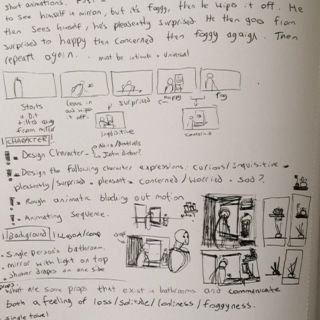 shot animations.
to see himself in mirror, but it's foggy, then he wipes it off. He
then sees himself, he's pleasantly surprised. He then goes from
surprised to happy then concerned then foggy again. Then
repeat again. must be intimate + universal
Starts
a bit
from mirror
leans in
and wipes
it off.
surprised
fog
inquisitive
concerned
CHARACTER
Design Character-
Design the following character expressions: curious/inquisitive
pleasantly/surprised - pleasant - concerned/worried - sad?
Rough animatic blocking out motion
Animating Sequence.
Background layout/comp
Single person's bathroom.
mirror with light on top
shower drapes on one side
props
what are some props that exist in bathrooms and communicate
both a feeling of loss/solitude/loneliness/foggyness.
single towel